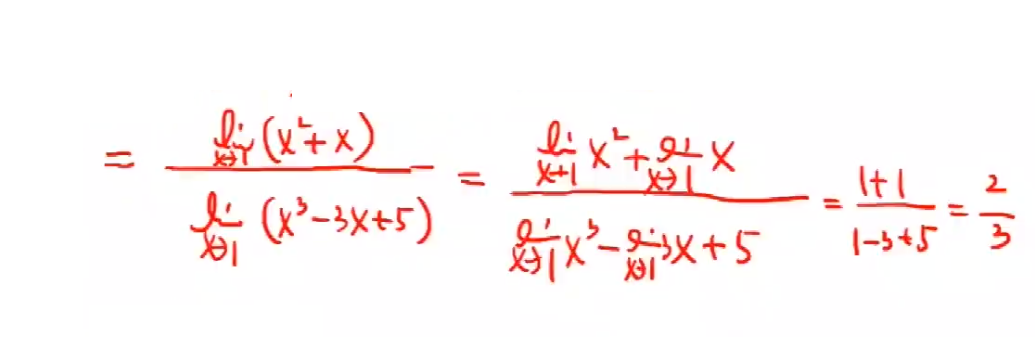 = \frac{\lim_{x \to 1} (x^2 + x)}{\lim_{x \to 1} (x^3 - 3x + 5)} = \frac{\lim_{x \to 1} x^2 + \lim_{x \to 1} x}{\lim_{x \to 1} x^3 - \lim_{x \to 1} 3x + 5} = \frac{1+1}{1-3+5} = \frac{2}{3}